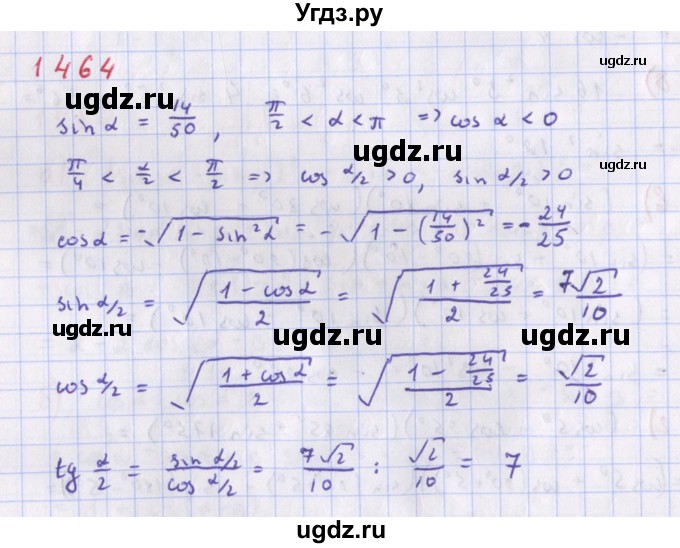 Угдз.ру
1464
ugdz.ru
ugdz.ru
sin α = 14/50, π/2 < α < π => cos α < 0
ugdz.ru
π/4 < α/2 < π/2 => cos α/2 > 0, sin α/2 > 0
cos α = -√(1 - sin²α) = -√(1 - (14/50)²) = -24/25
ugdz.ru
sin α/2 = √((1 - cos α)/2) = √((1 + 24/25)/2) = 7√2/10
ugdz.ru
ugdz.ru
ugdz.ru
cos α/2 = √((1 + cos α)/2) = √((1 - 24/25)/2) = √2/10
ugdz.ru
tg α/2 = (sin α/2)/(cos α/2) = 7√2/10 : √2/10 = 7
ugdz.ru
ugdz.ru
ugdz.ru